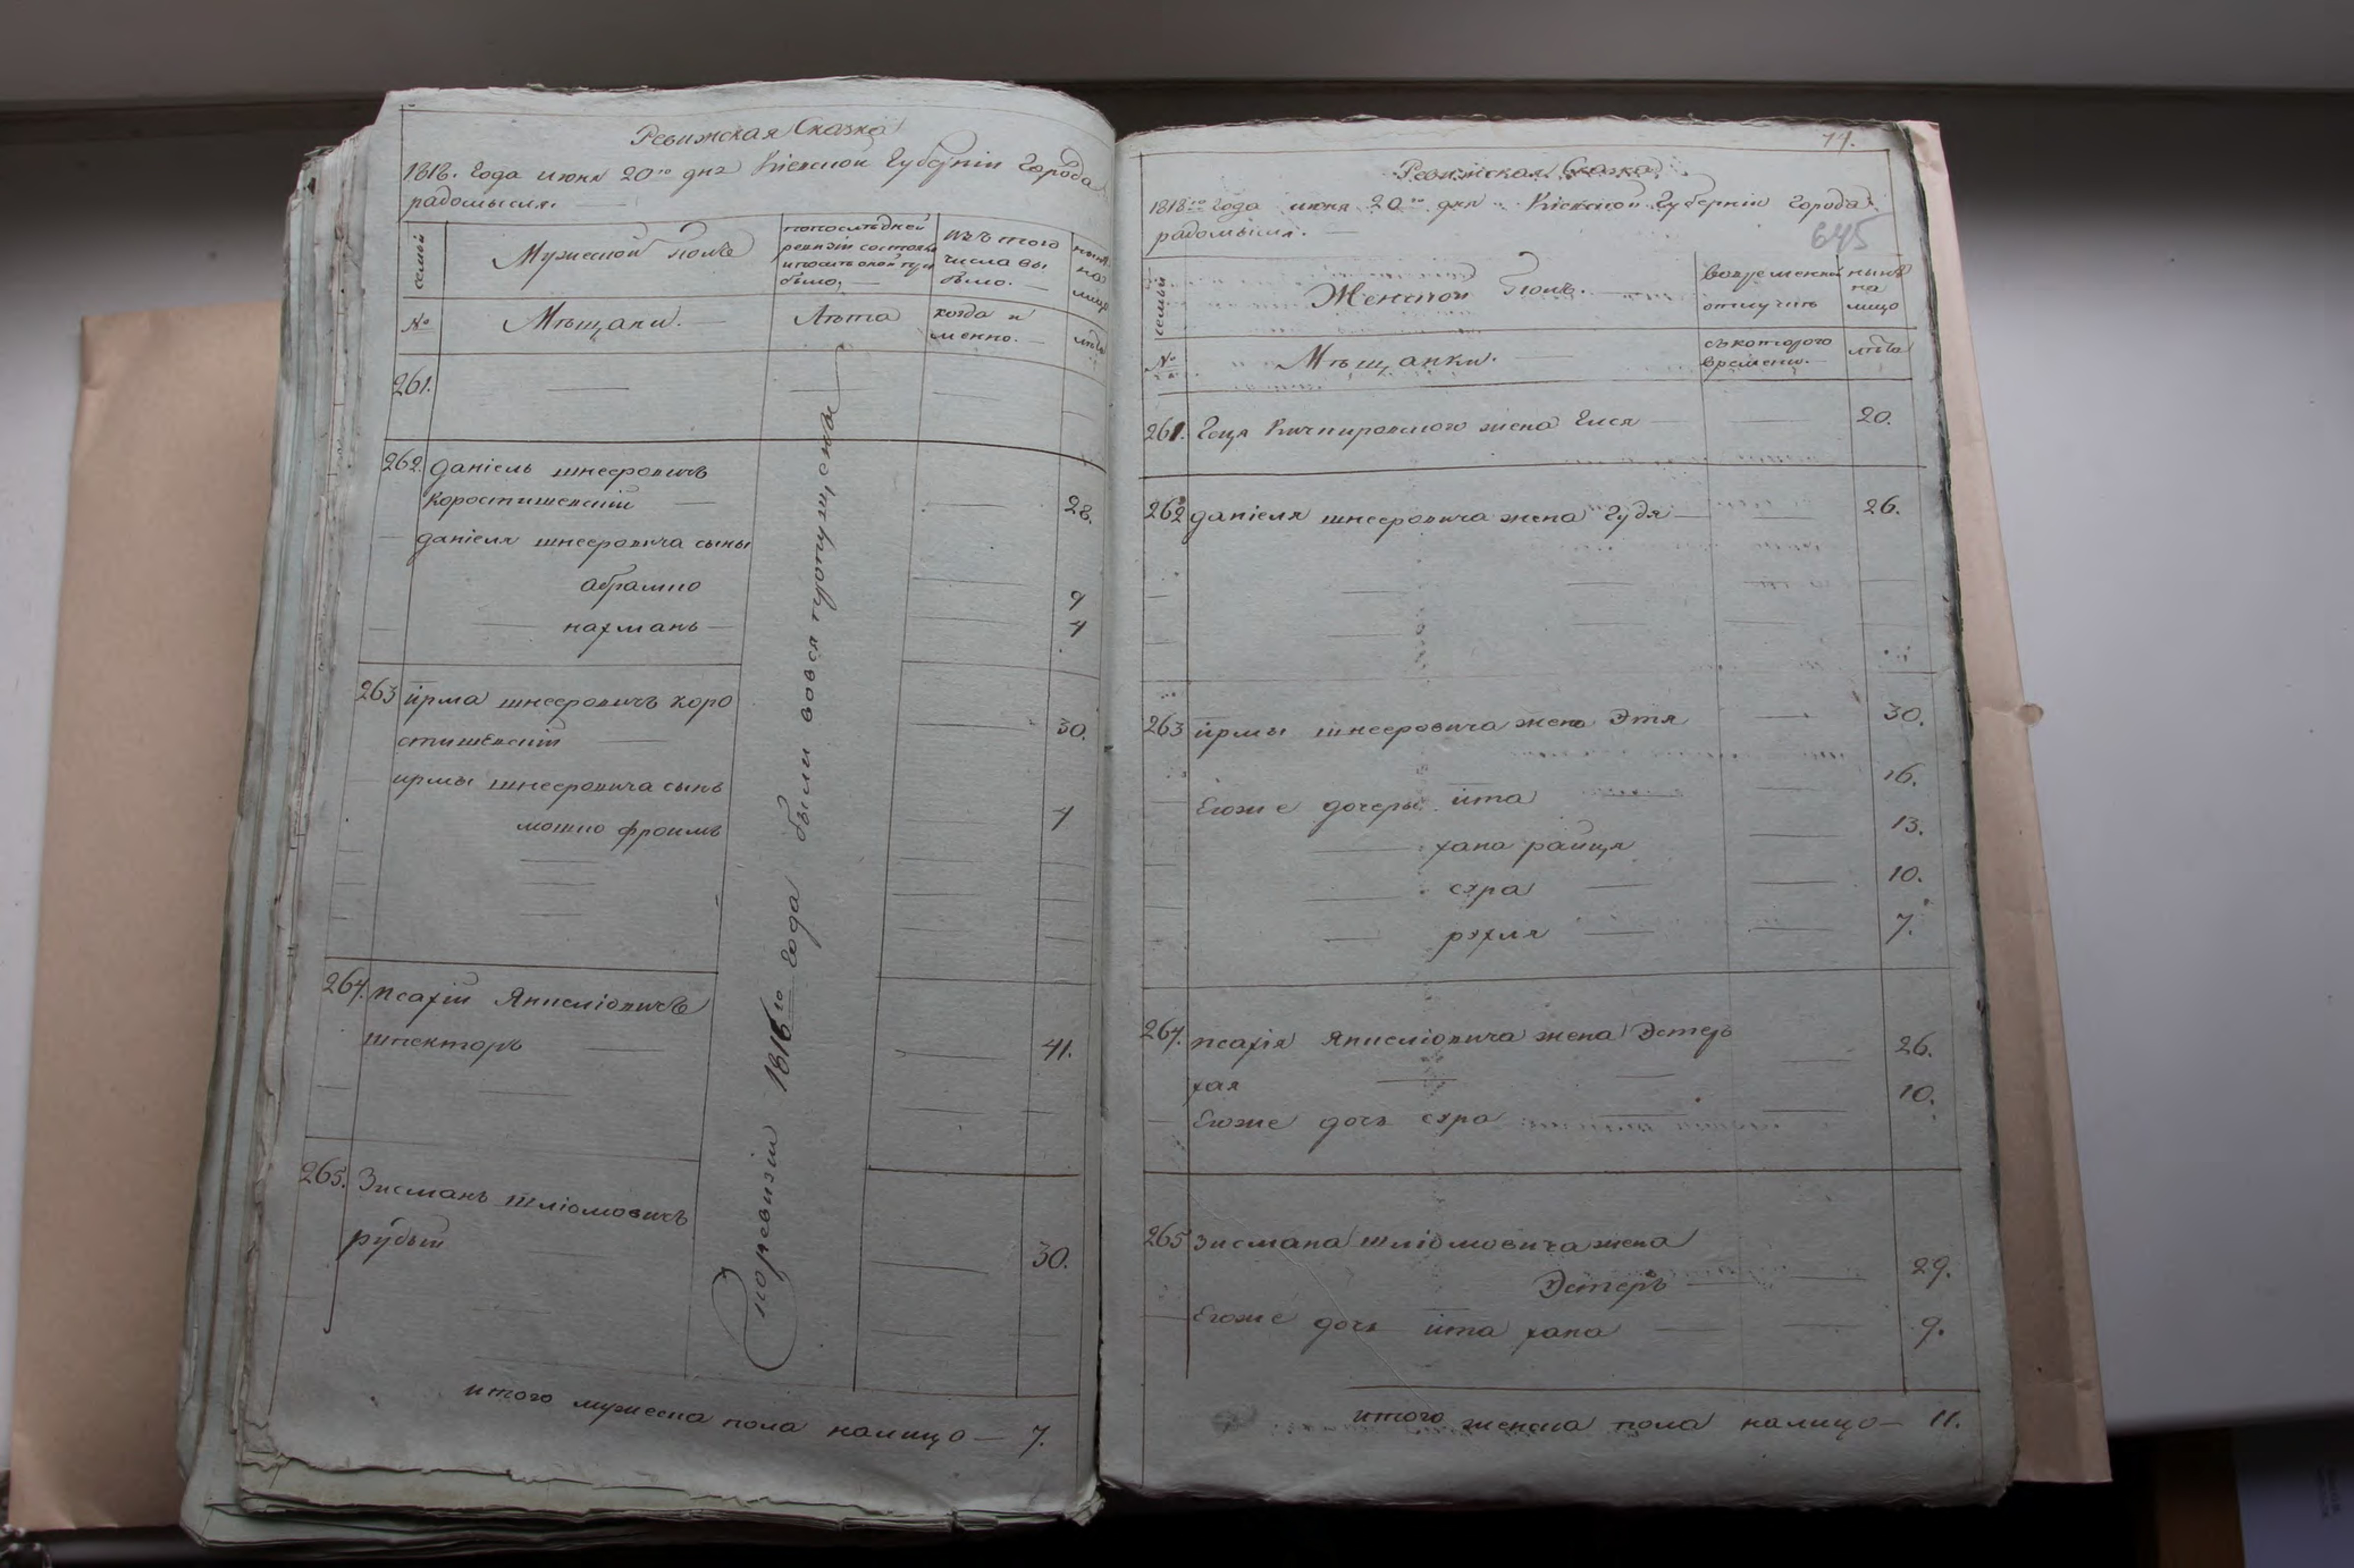 Ревижская Сказка
1818. Года июня 20го дня Кіевской Губерніи Города
радомысля.
семьи
Мужеской полъ
попоследней
ревизіи состояло
ипосле оной при
было,
изъ того
числа вы
было.
ныне
на
лицо
№
Мѣщани.
Лѣта
когда и
менно.
лѣта
261.
262. Даніель шнееровичъ
Коростишевскій
28.
Даніеля шнееровича сыны
абрамко
9
нахманъ
4
263 ирма шнееровичъ коро
стишевскій
30.
ирмы шнееровича сынъ
мошко фроимъ
4
264. псахій Янкеліовичъ
шпекторъ
41.
265. Зисманъ шліомовичъ
рубый
30.
поревизіи 1816го года были вовся пропущены
итого мужеска пола налицо — 7.
74.
Ревижская Сказка
1818го года июня 20го дня Кіевской Губерніи Города
радомысля.
645
семьи
Женской Полъ.
вовременной
отлучке
ныне
на
лицо
№
Мѣщанки.
съкоторого
времени.
лѣта
261. Геця Кичкировского жена Еися
20.
262 даніеля шнееровича жена Гудя
26.
263 ирмы шнееровича жена Этя
30.
Егоже дочеры ита
16.
хана райця
13.
сура
10.
рухля
7.
264. псахія Янкеліовича жена Эстеръ
26.
хая
Егоже дочь сура
10.
265 зисмана шліомовича жена
Эстеръ
29.
Егоже дочь ита хана
9.
итого женска пола налицо — 11.